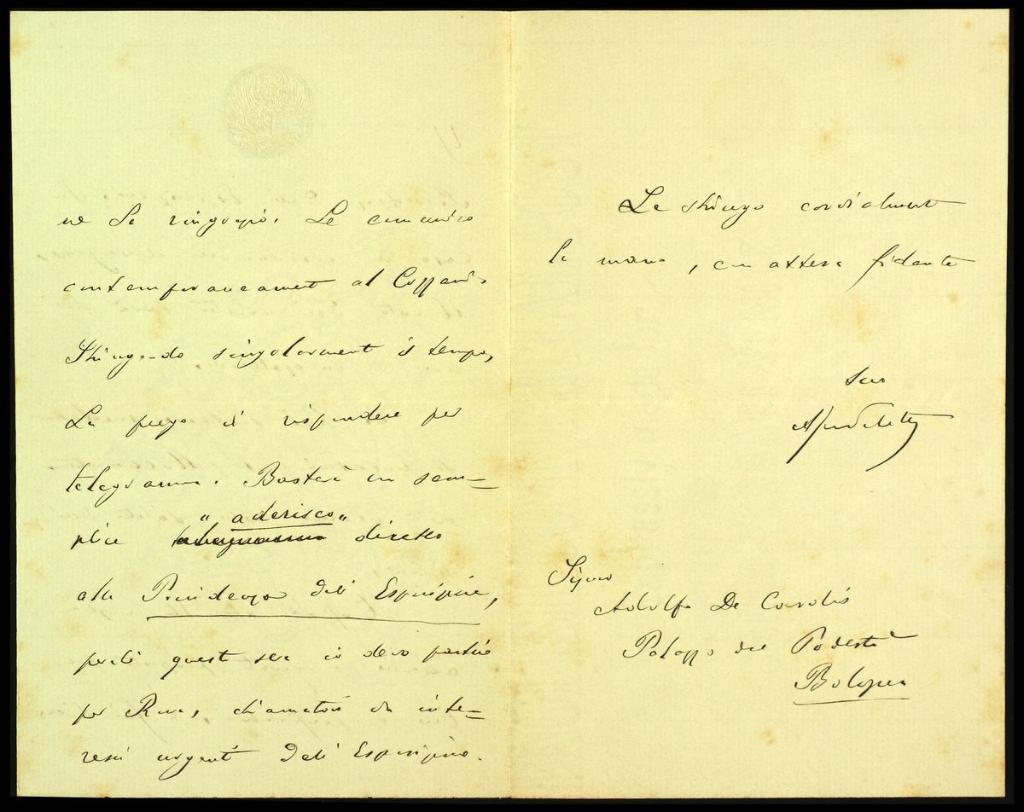 ne La ringrazio. Le comunico
contemporaneamente al
Stringendo singolarmente il tempo,
La prego di rispondere per
telegramma. Basterà un sem=
plice "aderisco" diretto
alla Presidenza dell'Esposizione,
perché questa sera io devo partire
per Roma, chiamatovi da inte=
ressi urgenti dell'Esposizione.
Le stringo cordialmente
la mano, in attesa fidente
Suo
Signor
Adolfo De Carolis
Palazzo del Podestà
Bologna